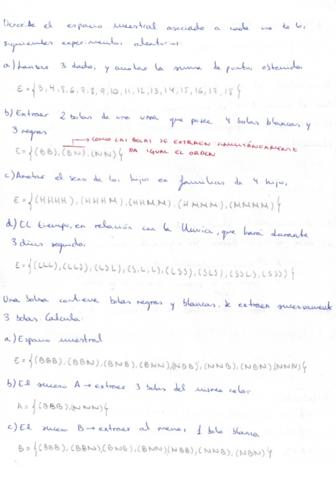 Describe el espacio muestral asociado a cada uno de los
siguientes experimentos aleatorios
a) Lanzar 3 dados, y anotar la suma de puntos obtenidos
E={3,4,5,6,7,8,9,10,11,12,13,14,15,16,17,18}
b) Extraer 2 bolas de una urna que posee 4 bolas blancas y
3 negras
COMO LAS BOLAS SE EXTRAEN SIMULTÁNEAMENTE
E={(BB),(BN),(NN)} DA IGUAL EL ORDEN
c) Anotar el sexo de los hijos en familias de 4 hijos
E={(HHHH),(HHHM),(HHMM),(HMMM),(MMMM)}
d) El tiempo, en relación con la lluvia, que hará durante
3 días seguidos
E={(LLL),(LLS),(LSL),(SLL),(LSS),(SLS),(SSL),(SSS)}
Una bolsa contiene bolas negras y blancas. Se extraen sucesivamente
3 bolas. Calcula:
a) Espacio muestral
E={(BBB),(BBN),(BNB),(BNN),(NBB),(NNB),(NBN),(NNN)}
b) El suceso A → extraer 3 bolas del mismo color
A={(BBB),(NNN)}
c) El suceso B → extraer al menos 1 bola blanca
B={(BBB),(BBN),(BNB),(BNN),(NBB),(NNB),(NBN)}